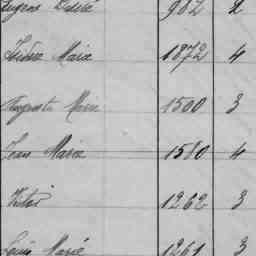 Eugène Désiré 982 2
Isidore Marie 1872 4
Auguste Marie 1500 3
Jean Marie 1580 4
Victor 1262 3
Louis Marie 1261 3